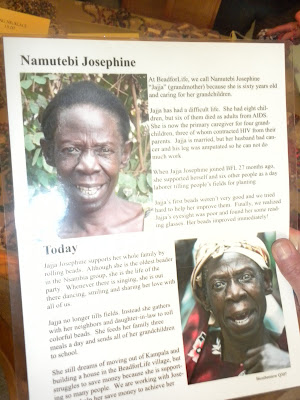 Namutebi Josephine
At BeadforLife, we call Namutebi Josephine
"Jajja" (grandmother) because she is sixty years old
and caring for her grandchildren.
Jajja has had a difficult life. She had eight chil-
dren, but six of them died as adults from AIDS.
She is now the primary caregiver for four grand-
children, three of whom contracted HIV from their
parents. Jajja is married, but her husband had can-
cer and his leg was amputated so he can not do
much work.
When Jajja Josephine joined BFL 27 months ago,
she supported herself and six other people as a day
laborer tilling people's fields for planting.
Jajja's first beads weren't very good and we tried
hard to help her improve them. Finally, we realized
Jajja's eyesight was poor and found her some read-
ing glasses. Her beads improved immediately!
Today
Jajja Josephine supports her whole family by
rolling beads. Although she is the oldest beader
in the group, she is the life of the
party. Whenever there is singing, she is out
there dancing, smiling and sharing her love with
all of us.
Jajja no longer tills fields. Instead she gathers
with her neighbors and daughter-in-law to roll
colorful beads. She feeds her family three
meals a day and sends all of her grandchildren
to school.
She still dreams of moving out of Kampala and
building a house in the BeadforLife village, but
struggles to save money because she is support-
ing so many people. We are working with
her save money to achieve her